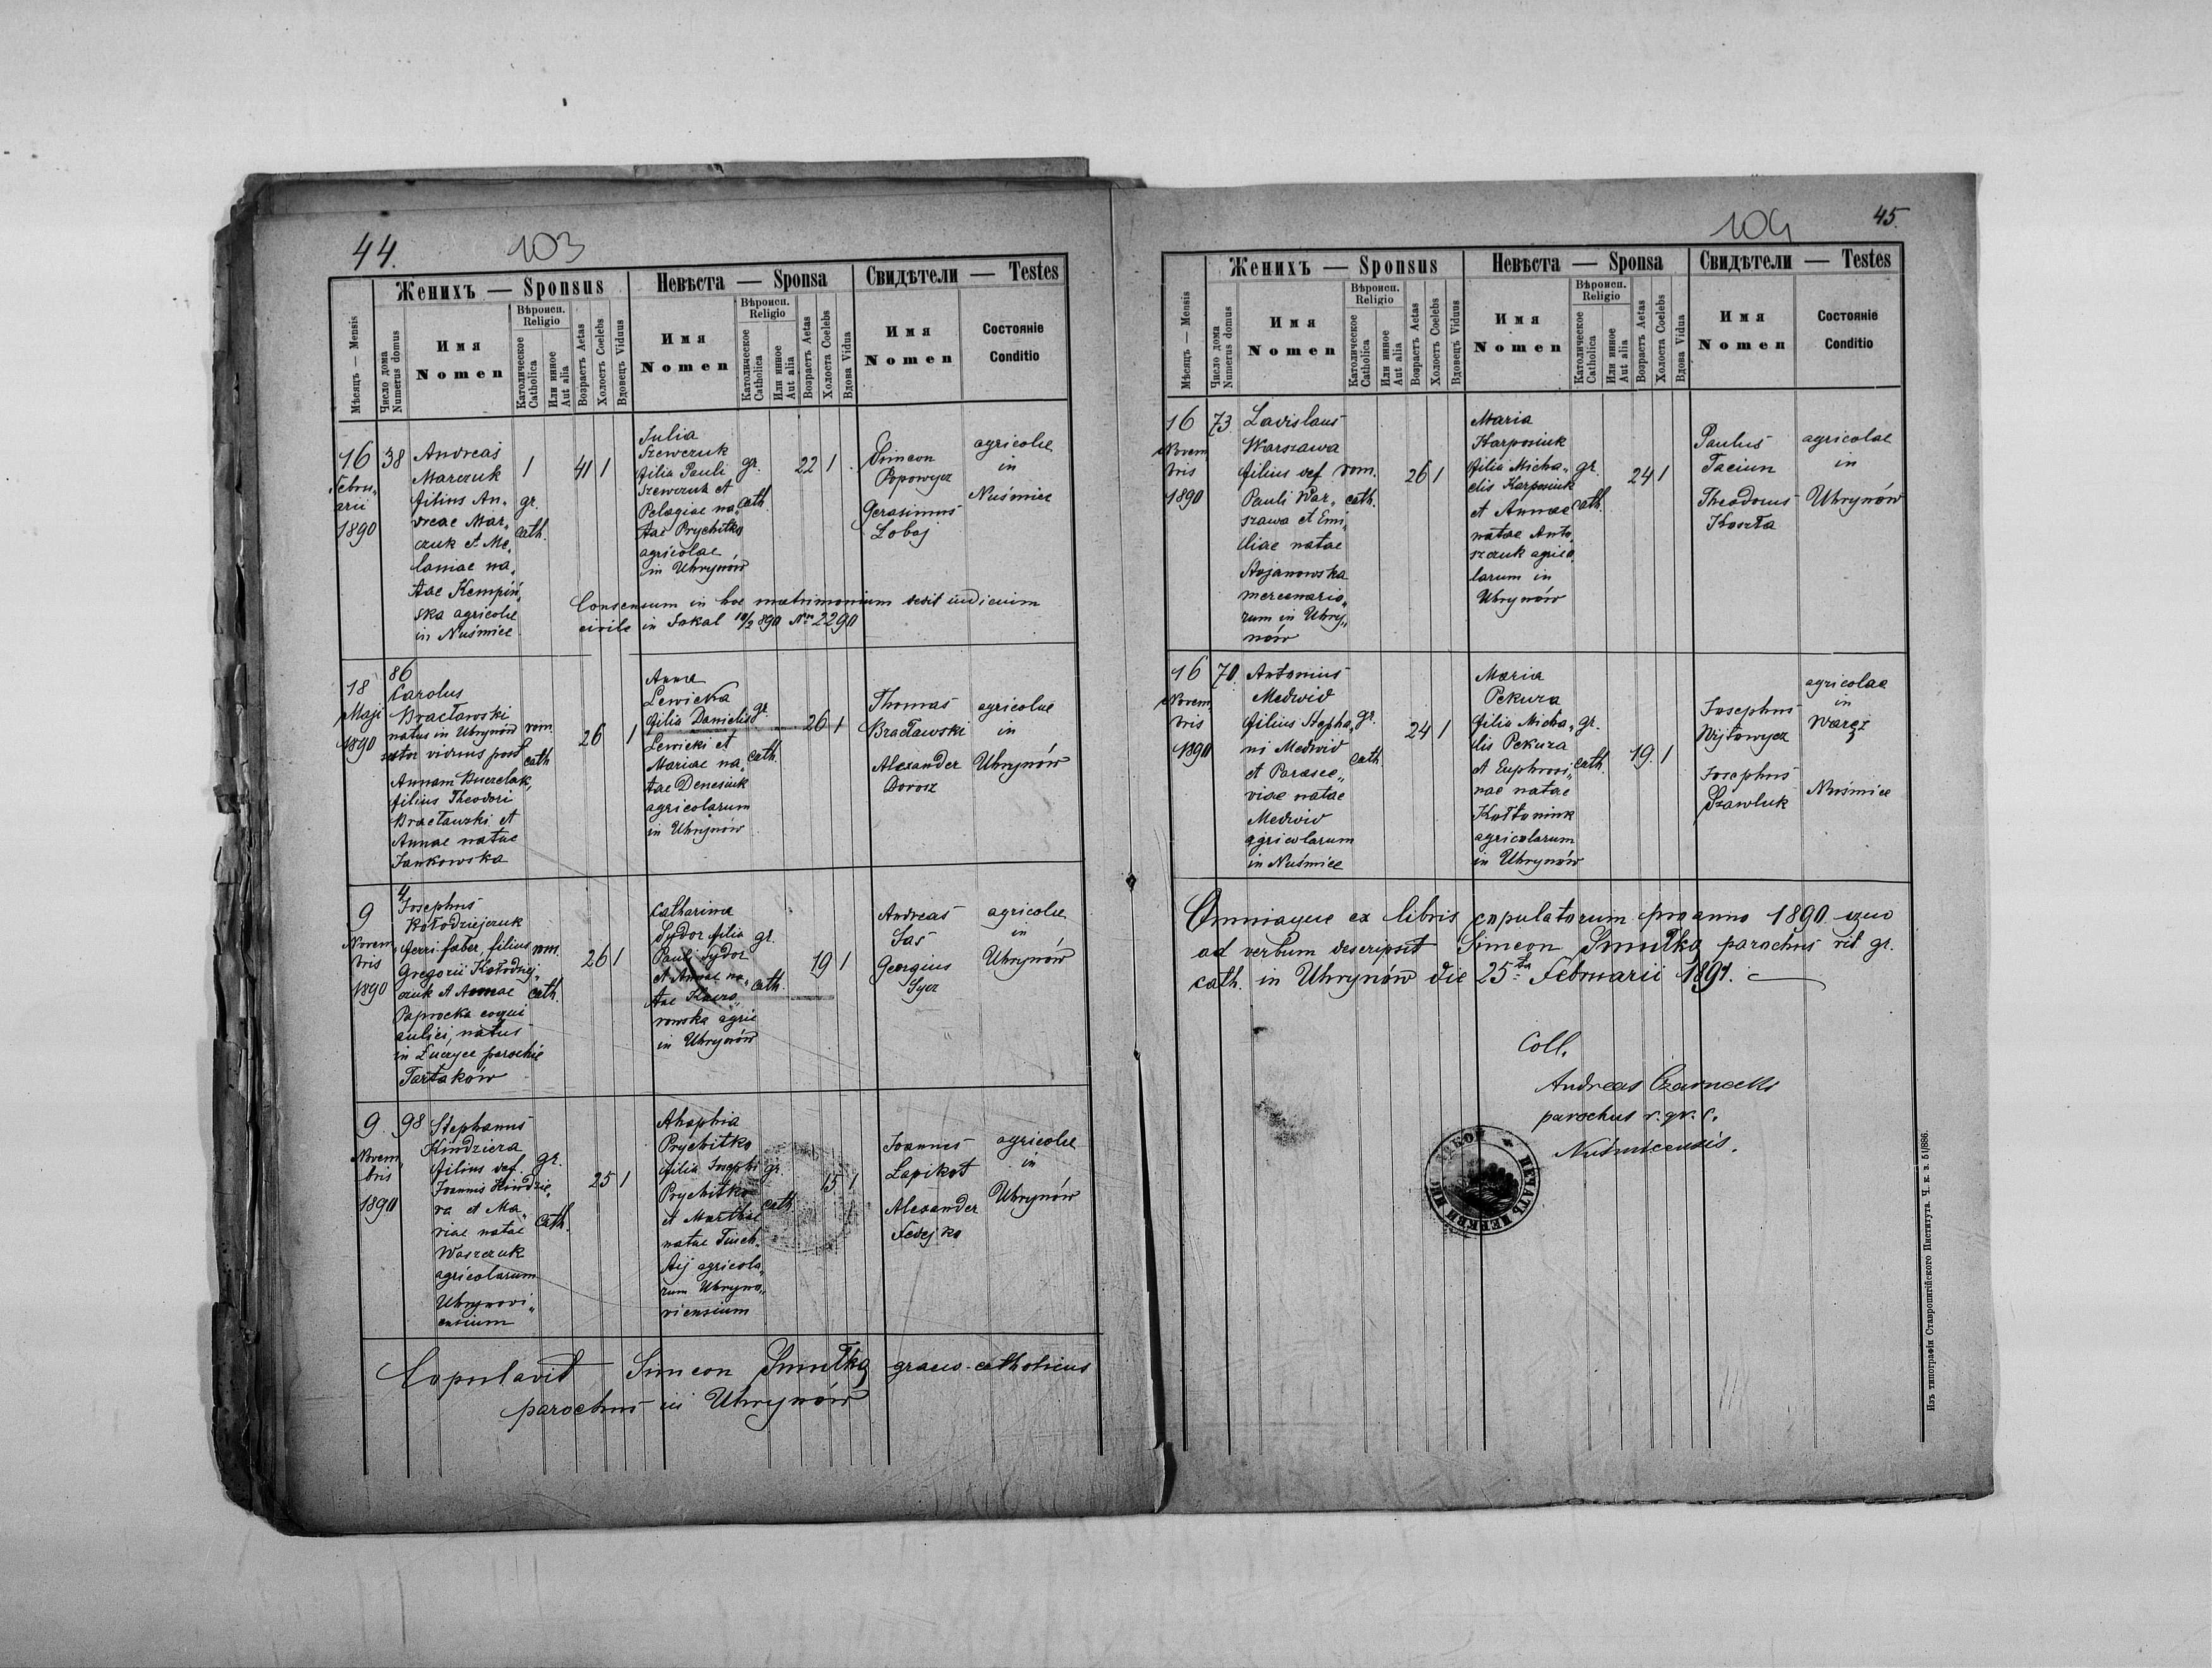 44.
103
Женихъ — Sponsus
Невѣста — Sponsa
Свидѣтели — Testes
Мѣсяцъ — Mensis
Число дома
Numerus domus
Имя
Nomen
Вѣроисп.
Religio
Католическое
Catholica
Или инное
Aut alia
Возрастъ Aetas
Холостъ Coelebs
Вдовецъ Viduus
Имя
Nomen
Вѣроисп.
Religio
Католическое
Catholica
Или инное
Aut alia
Возрастъ Aetas
Холоста Coelebs
Вдова Vidua
Имя
Nomen
Состояніе
Conditio
16
Febru„
arii
1890
38
Andreas
Marczuk
filius An„
dreae Mar„
czuk et Me„
laniae na„
tae Kempiń„
ska agricolae
in Nuśmice
1
gr.
cath.
41 1
Julia
Szewczuk
filia Pauli
Szewczuk et
Pelagiae na„
tae Prychitko
agricolae
in Uhrynów
gr.
cath.
22 1
Simeon
Popowycz
Gerasimus
Loboj
agricolae
in
Nuśmice
Consensum in hoc matrimonium dedit iudicium
civile in Sokal 18/2 890 Nr 2290
18
Maji
1890
86
Carolus
Bracławski
natus in Uhrynów
sutor viduus post
Annam Buczelak,
filius Theodori
Bracławski et
Annae natae
Jankowska
rom.
cath
26 1
Anna
Lewicka
filia Danielis
Lewicki et
Mariae na„
tae Denesiuk
agricolarum
in Uhrynów
gr.
cath.
26 1
Thomas
Bracławski
Alexander
Dorosz
agricolae
in
Uhrynów
9
Novem„
bris
1890
4
Josephus
Kołodziejczuk
ferri faber, filius
Gregorii Kołodziej„
czuk et Annae
Paprocka coqui
aulici, natus
in Łuczyce parochie
Tartaków
rom.
cath.
26 1
Catharina
Sydor filia
Pauli Sydor
et Annae na„
tae
rowska agric
in Uhrynów
gr.
cath.
19 1
Andreas
Sas
Georgius
Sycz
agricolae
in
Uhrynów
9.
Novem„
bris
1890
98
Stephanus
Kindzera
filius def.
Joannis Kindze„
ra et Ma„
riae natae
Waszczuk
agricolarum
Uhrynovi„
ensium
gr.
Cath.
25 1
Ahaphia
Prychitko
filia Josephi
Prychitko
et Marthae
natae Tusch„
tij agricola„
rum Uhryno„
viensium
gr.
cath
15 1
Joannes
Łapikot
Alexander
Fedejko
agricolae
in
Uhrynów
Copulavit Simeon Smulka graeco-catholicus
parochus in Uhrynów
104
45.
Женихъ — Sponsus
Невѣста — Sponsa
Свидѣтели — Testes
Мѣсяцъ — Mensis
Число дома
Numerus domus
Имя
Nomen
Вѣроисп.
Religio
Католическое
Catholica
Или инное
Aut alia
Возрастъ Aetas
Холостъ Coelebs
Вдовецъ Viduus
Имя
Nomen
Вѣроисп.
Religio
Католическое
Catholica
Или инное
Aut alia
Возрастъ Aetas
Холоста Coelebs
Вдова Vidua
Имя
Nomen
Состояніе
Conditio
16
Novem„
bris
1890
73
Ladislaus
Warszawa
filius def
Pauli War„
szawa et Emi„
liae natae
Stojanowska
mercenario„
rum in Uhry„
nów
rom.
cath.
26 1
Maria
Karpoiuk
filia Micha„
elis Karpoiuk
et Annae
natae Anto„
szczuk agrico„
larum in
Uhrynów
gr.
cath.
24 1
Paulus
Taciun
Theodorus
Koszta
agricolae
in
Uhrynów
16
Novem„
bris
1890
70.
Antonius
Medwid
filius Stepha„
ni Medwid
et Parasce„
viae natae
Medwid
agricolarum
in Nuśmice
gr.
cath.
24 1
Maria
Pekura
filia Micha„
lis Pekura
et Euphrosi„
nae natae
Kołtoniuk
agricolarum
in Uhrynów
gr.
cath.
19. 1
Josephus
Wijtowycz
Josephus
Szawluk
agricolae
in
Waręż
Nuśmice
Omniaque ex libris copulatorum pro anno 1890
ad verbum descripsit Simeon Smulka parochus rit. gr.
cath. in Uhrynów die 25ta Februarii 1891.
Coll.
Andreas Czarnecki
parochus r. gr. c.
Nuśmicensis.
ПЕЧАТЬ ЦЕРКВИ
Изъ типографіи Ставропигійского Института. Ч. к. з. 51/886.